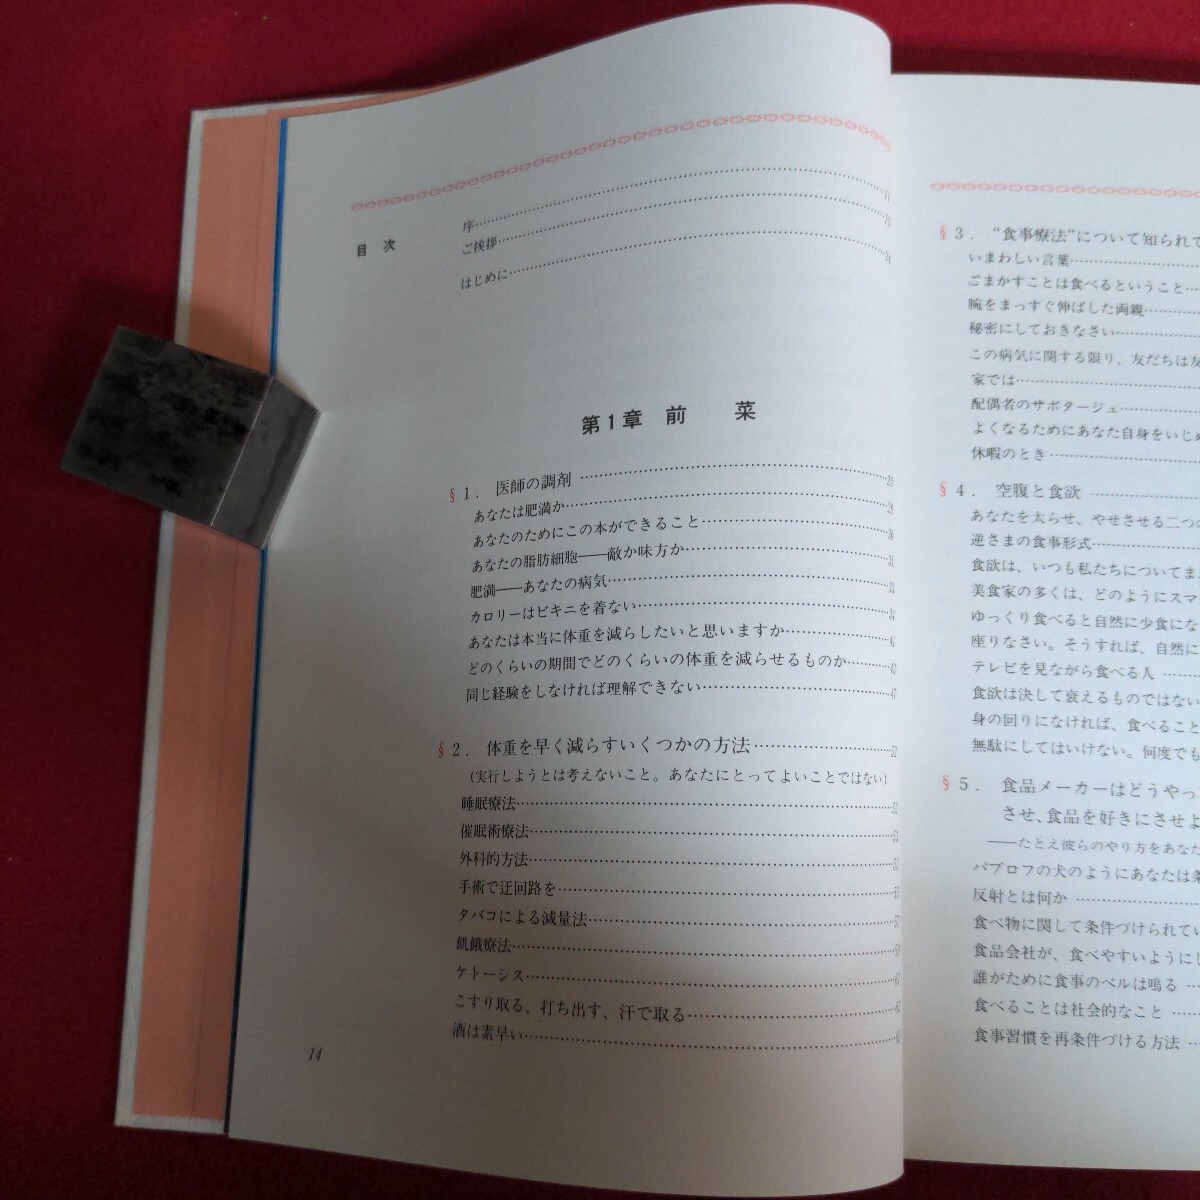 目次
序……11
ご挨拶……12
はじめに……24
第1章 前 菜
§1. 医師の調剤……28
あなたは肥満か……28
あなたのためにこの本ができること……30
あなたの脂肪細胞——敵か味方か……31
肥満——あなたの病気……31
カロリーはビキニを着ない……34
あなたは本当に体重を減らしたいと思いますか……41
どのくらいの期間でどのくらいの体重を減らせるものか……42
同じ経験をしなければ理解できない……47
§2. 体重を早く減らすいくつかの方法……52
(実行しようとは考えないこと。あなたにとってよいことではない)
睡眠療法……52
催眠術療法……53
外科的方法……
手術で迂回路を……
タバコによる減量法……57
飢餓療法……
ケトーシス……
こすり取る、打ち出す、汗で取る……62
酒は素早い……
14
§3. “食事療法”について知られて
いまわしい言葉……
ごまかすことは食べるということ…
腕をまっすぐ伸ばした両親……
秘密にしておきなさい……
この病気に関する限り、友だちは友
家では……
配偶者のサボタージュ……
よくなるためにあなた自身をいじめ
休暇のとき……
§4. 空腹と食欲……
あなたを太らせ、やせさせる二つ
逆さまの食事形式……
食欲は、いつも私たちについてま
美食家の多くは、どのようにスマ
ゆっくり食べると自然に少食にな
座りなさい。そうすれば、自然に
テレビを見ながら食べる人……
食欲は決して衰えるものではない
身の回りになければ、食べること
無駄にしてはいけない。何度でも
§5. 食品メーカーはどうやっ
させ、食品を好きにさせよ
——たとえ彼らのやり方をあなた
パブロフの犬のようにあなたは条
反射とは何か……
食べ物に関して条件づけられてい
食品会社が、食べやすいようにし
誰がために食事のベルは鳴る……
食べることは社会的なこと……
食事習慣を再条件づける方法……